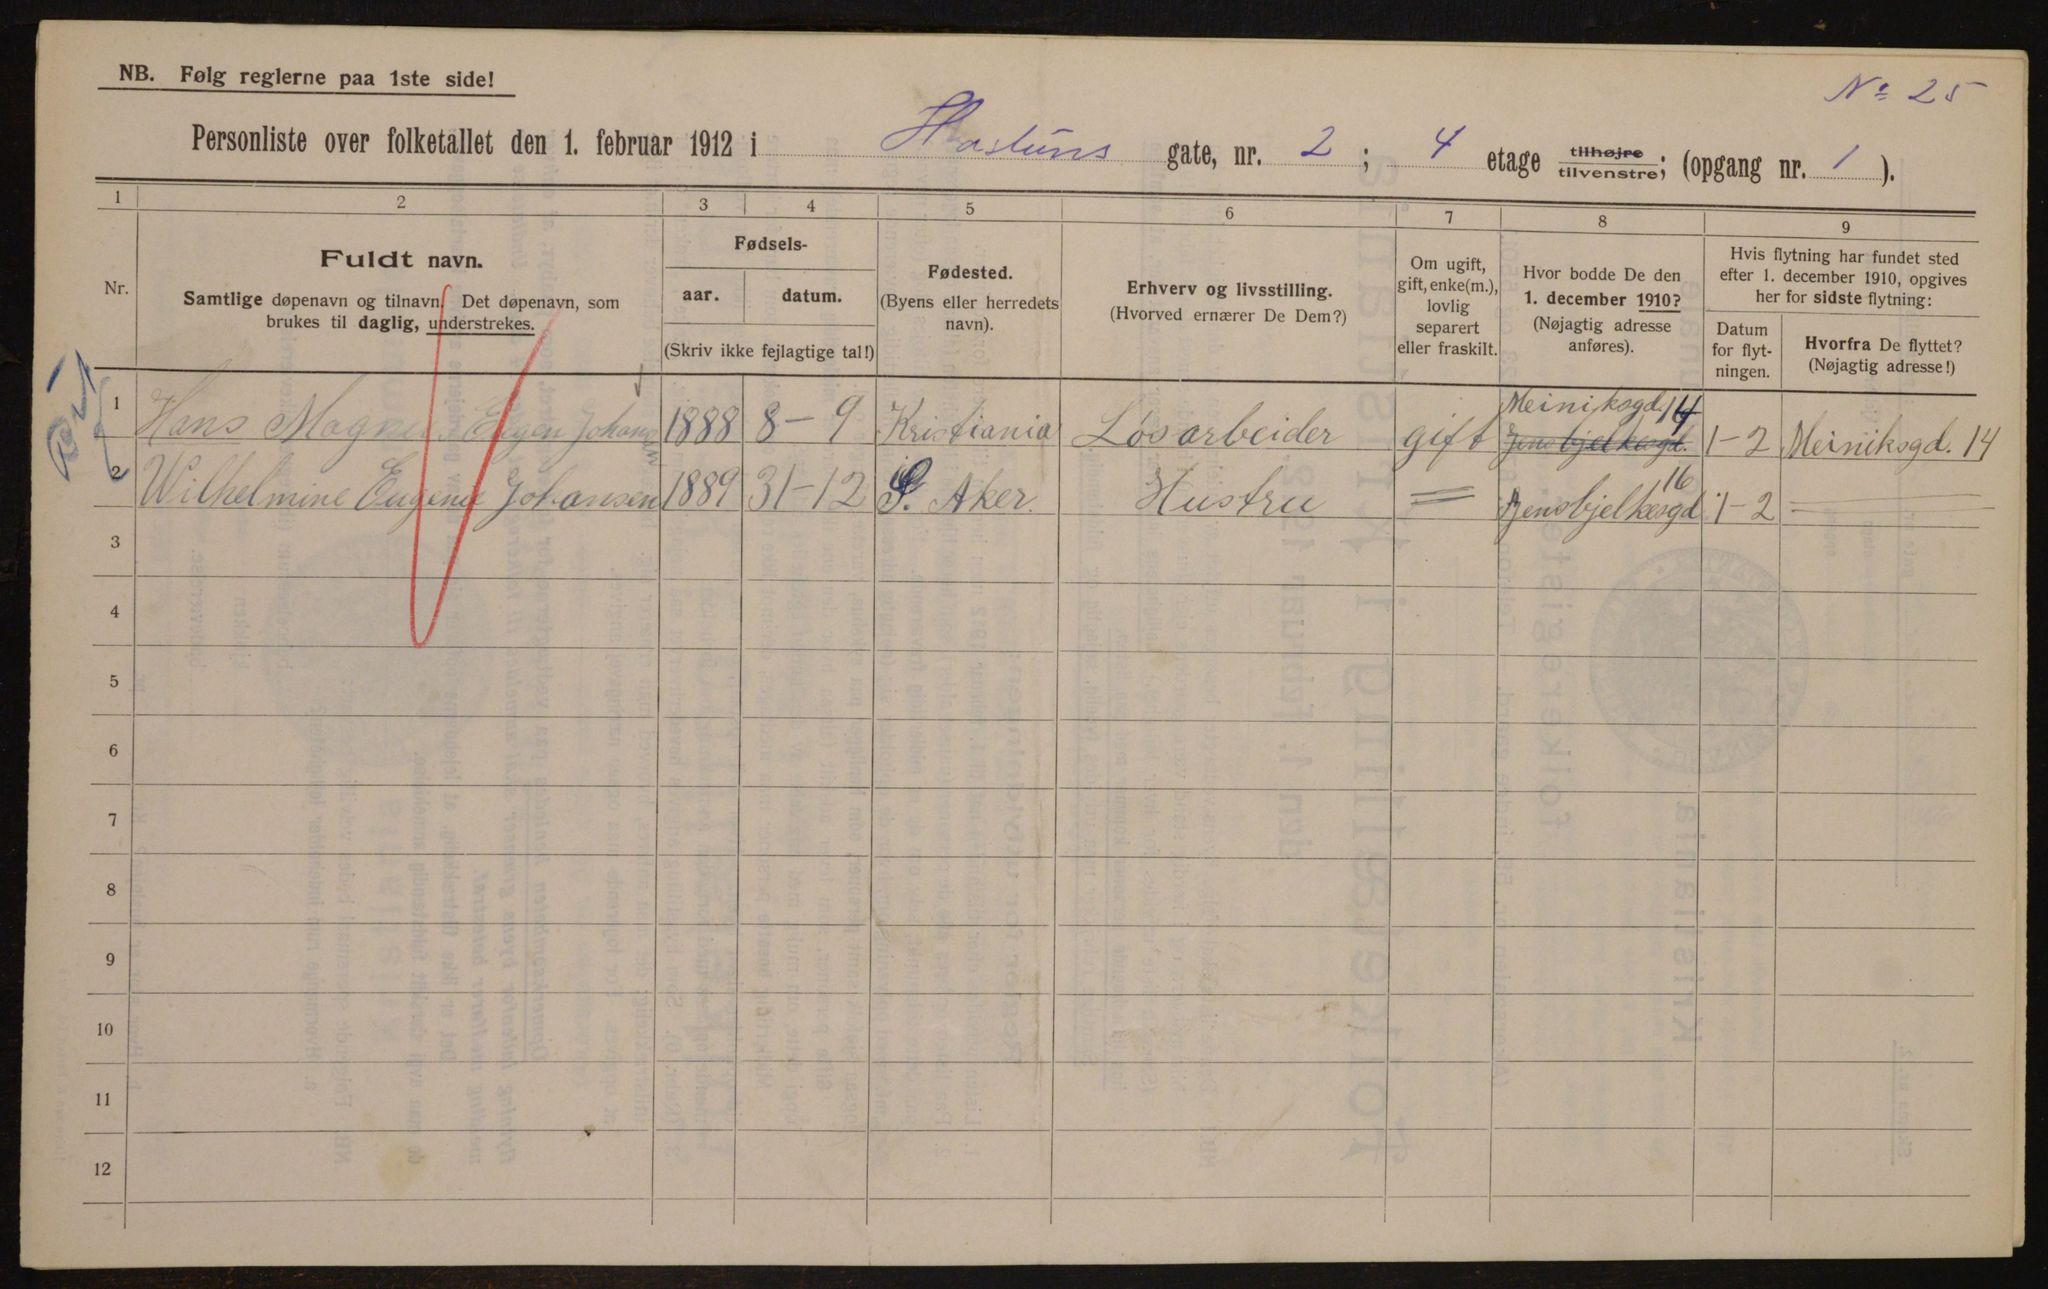 NB. Følg reglerne paa 1ste side!
No 25
Personliste over folketallet den 1. februar 1912 i Hasluns gate, nr. 2 ; 4 etage tilhøjre tilvenstre; (opgang nr. 1 ).
1 2 3 4 5 6 7 8 9
Nr.
Fuldt navn.
Samtlige døpenavn og tilnavn. Det døpenavn, som
brukes til daglig, understrekes.
Fødsels-
aar. datum.
(Skriv ikke fejlagtige tal!)
Fødested.
(Byens eller herredets
navn).
Erhverv og livsstilling.
(Hvorved ernærer De Dem?)
Om ugift,
gift, enke(m.),
lovlig
separert
eller fraskilt.
Hvor bodde De den
1. december 1910?
(Nøjagtig adresse
anføres).
Hvis flytning har fundet sted
efter 1. december 1910, opgives
her for sidste flytning:
Datum
for flyt-
ningen.
Hvorfra De flyttet?
(Nøjagtig adresse!)
1 Hans Magnus Eugen Johansen 1888 8-9 Kristiania Løsarbeider gift Meiniksgd. 14 Jensbjelkesgd. 1-2 Meiniksgd. 14
2 Wilhelmine Eugenie Johansen 1889 31-12 Aker. Hustru = Jensbjelkesgd 16 1-2 =
3
4
5
6
7
8
9
10
11
12